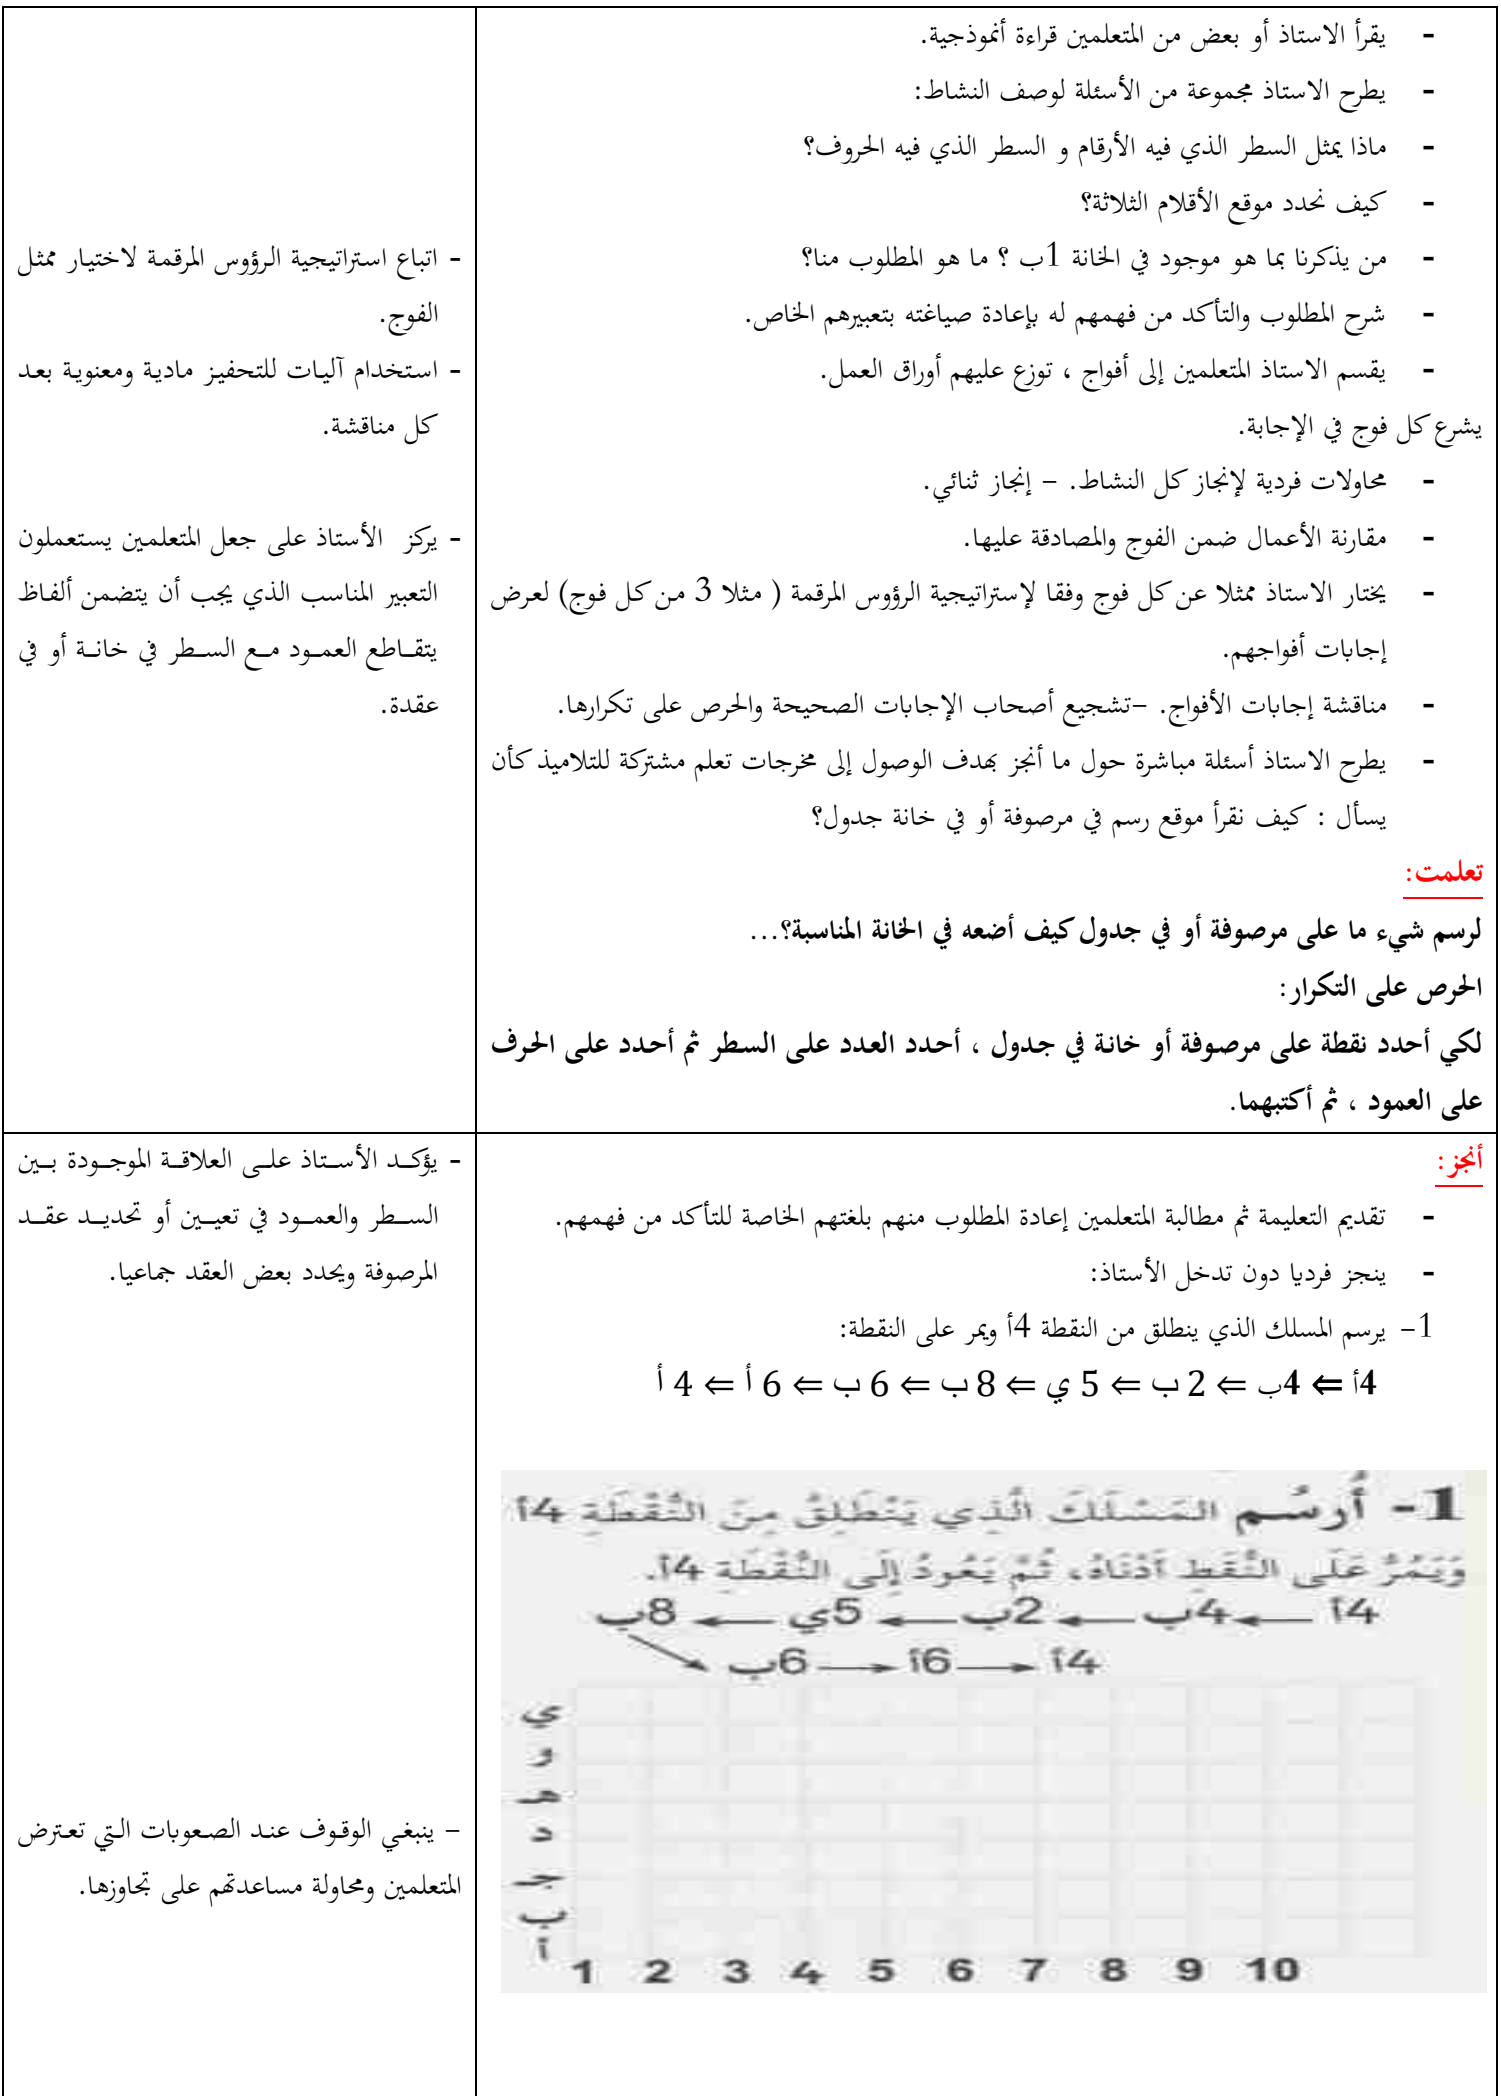 - يقرأ الاستاذ أو بعض من المتعلمين قراءة أنموذجية.
- يطرح الاستاذ مجموعة من الأسئلة لوصف النشاط:
- ماذا يمثل السطر الذي فيه الأرقام و السطر الذي فيه الحروف؟
- كيف نحدد موقع الأقلام الثلاثة؟
- من يذكرنا بما هو موجود في الخانة 1ب ؟ ما هو المطلوب منا؟
- شرح المطلوب والتأكد من فهمهم له بإعادة صياغته بتعبيرهم الخاص.
- يقسم الاستاذ المتعلمين إلى أفواج ، توزع عليهم أوراق العمل.
يشرع كل فوج في الإجابة.
- محاولات فردية لإنجاز كل النشاط. – إنجاز ثنائي.
- مقارنة الأعمال ضمن الفوج والمصادقة عليها.
- يختار الاستاذ ممثلا عن كل فوج وفقا لإستراتيجية الرؤوس المرقمة ( مثلا 3 من كل فوج) لعرض
إجابات أفواجهم.
- مناقشة إجابات الأفواج. –تشجيع أصحاب الإجابات الصحيحة والحرص على تكرارها.
- يطرح الاستاذ أسئلة مباشرة حول ما أنجز بهدف الوصول إلى مخرجات تعلم مشتركة للتلاميذ كأن
يسأل : كيف نقرأ موقع رسم في مرصوفة أو في خانة جدول؟
تعلمت:
لرسم شيء ما على مرصوفة أو في جدول كيف أضعه في الخانة المناسبة؟...
الحرص على التكرار:
لكي أحدد نقطة على مرصوفة أو خانة في جدول ، أحدد العدد على السطر ثم أحدد على الحرف
على العمود ، ثم أكتبهما.
- اتباع استراتيجية الرؤوس المرقمة لاختيار ممثل
الفوج.
- استخدام آليات للتحفيز مادية ومعنوية بعد
كل مناقشة.
- يركز الأستاذ على جعل المتعلمين يستعملون
التعبير المناسب الذي يجب أن يتضمن ألفاظ
يتقاطع العمود مع السطر في خانة أو في
عقدة.
أنجز:
- تقديم التعليمة ثم مطالبة المتعلمين إعادة المطلوب منهم بلغتهم الخاصة للتأكد من فهمهم.
- ينجز فرديا دون تدخل الأستاذ:
1– يرسم المسلك الذي ينطلق من النقطة 4أ ويمر على النقطة:
4أ ⇐ 4ب ⇐ 2 ب ⇐ 5 ي ⇐ 8 ب ⇐ 6 ب ⇐ 6 أ ⇐ 4 أ
1- أَرسُم المَسْلَكَ الَّذِي يَنْطَلِقُ مِنَ النُّقْطَةِ 4أ
وَيَمُرُّ عَلَى النُّقَطِ أَدْنَاهُ، ثُمَّ يَعُودُ إِلَى النُّقْطَةِ 4أ.
4أ ← 4ب ← 2ب ← 5ي ← 8ب
6ب → 6أ → 4أ
ي
و
هـ
د
جـ
ب
أ
1 2 3 4 5 6 7 8 9 10
- يؤكد الأستاذ على العلاقة الموجودة بين
السطر والعمود في تعيين أو تحديد عقد
المرصوفة ويحدد بعض العقد جماعيا.
– ينبغي الوقوف عند الصعوبات التي تعترض
المتعلمين ومحاولة مساعدتهم على تجاوزها.